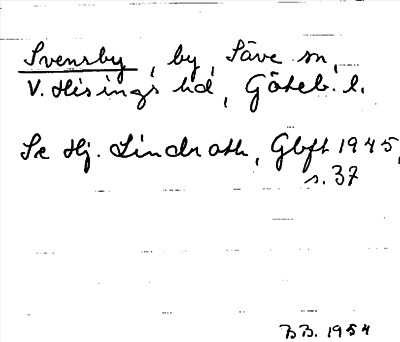 Svensby, by, Säve sn,
V. Hisings hd, Göteb. l.
Se Hj. Lindroth, Gbft 1945,
s. 37
BB. 1954